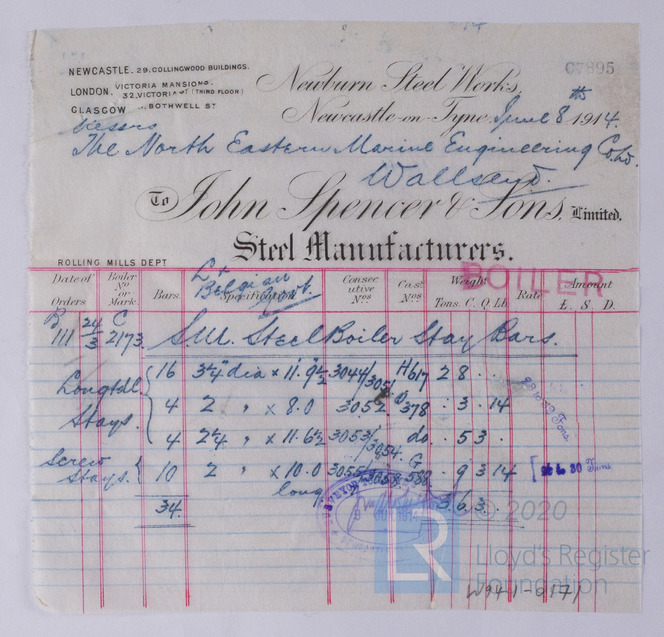 07895
NEWCASTLE. 29. COLLINGWOOD BUILDINGS.
LONDON. VICTORIA MANSIONS.
32. VICTORIA ST (THIRD FLOOR)
GLASGOW BOTHWELL ST
Newburn Steel Works,
Newcastle-on-Tyne, June 8th 1914.
Messrs
The North Eastern Marine Engineering Co. Ld.
Wallsend.
To John Spencer & Sons, Limited.
Steel Manufacturers.
ROLLING MILLS DEPT
Ll +
Belgian Govt.
BOILER
Date of Orders Boiler No or Mark. Bars. Specification Consecutive Nos Cast Nos Weight Tons. C. Q. Lb. Rate Amount £. S. D.
B 111 24/3 C 2173 S.M. Steel Boiler Stay Bars.
Longtdl. Stays.
16 3¼" dia × 11.9½ 3044/3051 H617 2 8 . .
4 2 " × 8.0 3052 378 . 3 . 14
4 2¼ " × 11.6½ 3053/3054 do. . 5 3 .
28 to 32 Tons
Screw Stays.
10 2 " × 10.0 long 3055/3058 G 588 . 9 3 14
30 Tons
34. 3. 6. 3.
SURVEYOR
LR
© 2020
Lloyd's Register
Foundation
W941-0171